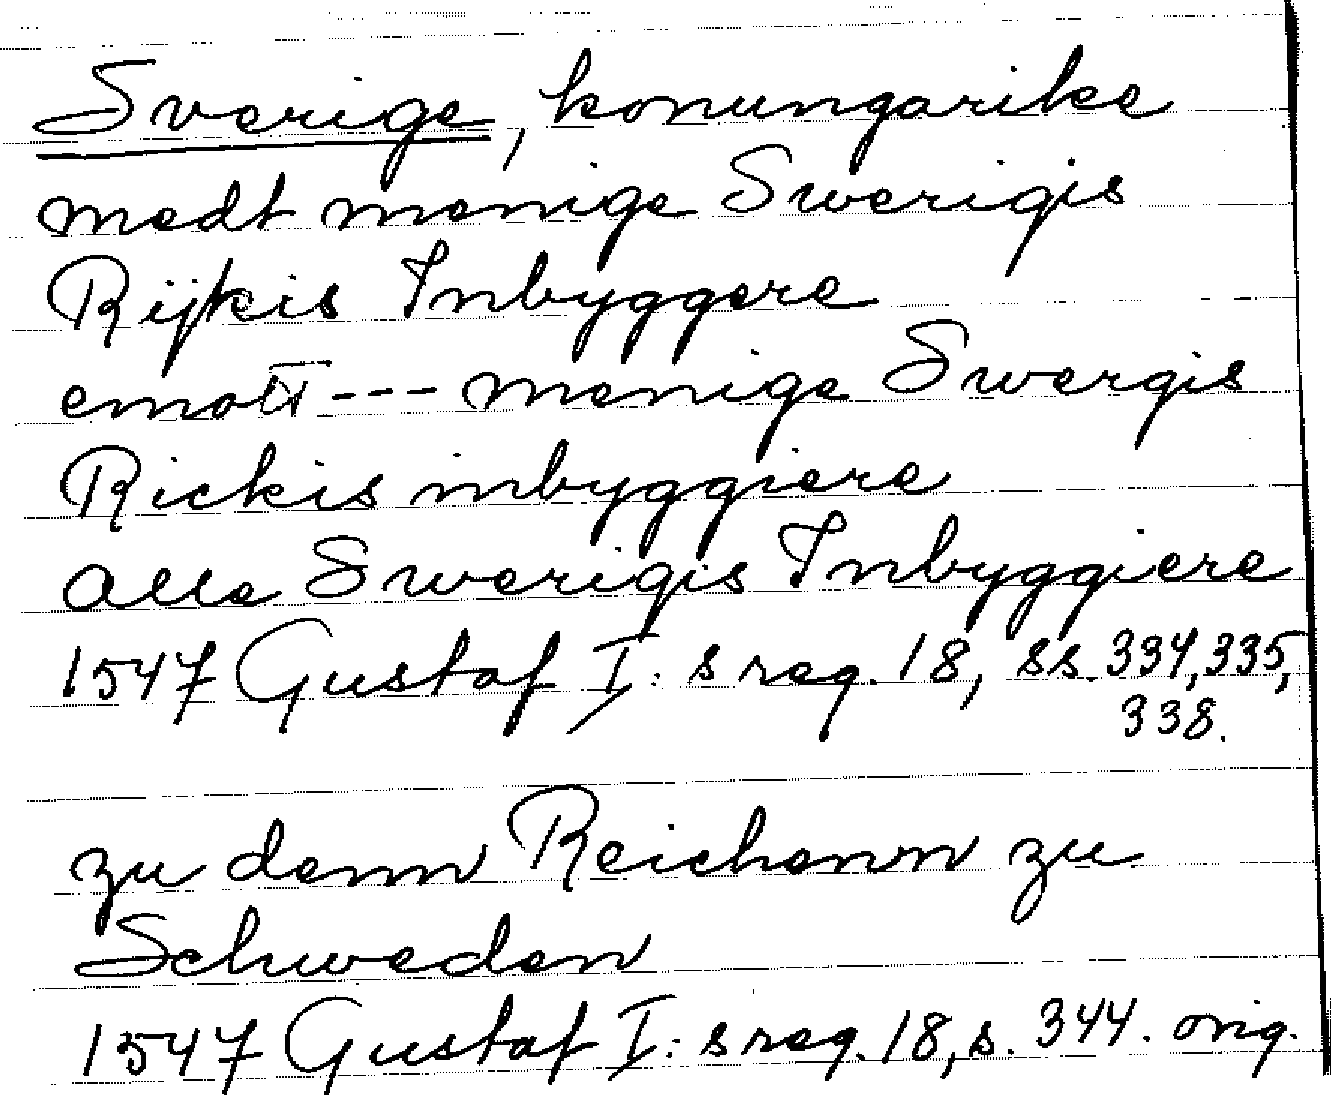 Sverige, konungarike
medt menige Swerigis
Rijkis Inbyggere
emott --- menige Swergis
Rickis inbyggiere
alle Swerigis Inbyggiere
1547 Gustaf I:s reg. 18, ss. 334, 335,
338.
zu denn Reichenn zu
Schweden
1547 Gustaf I:s reg. 18, s. 344. orig.